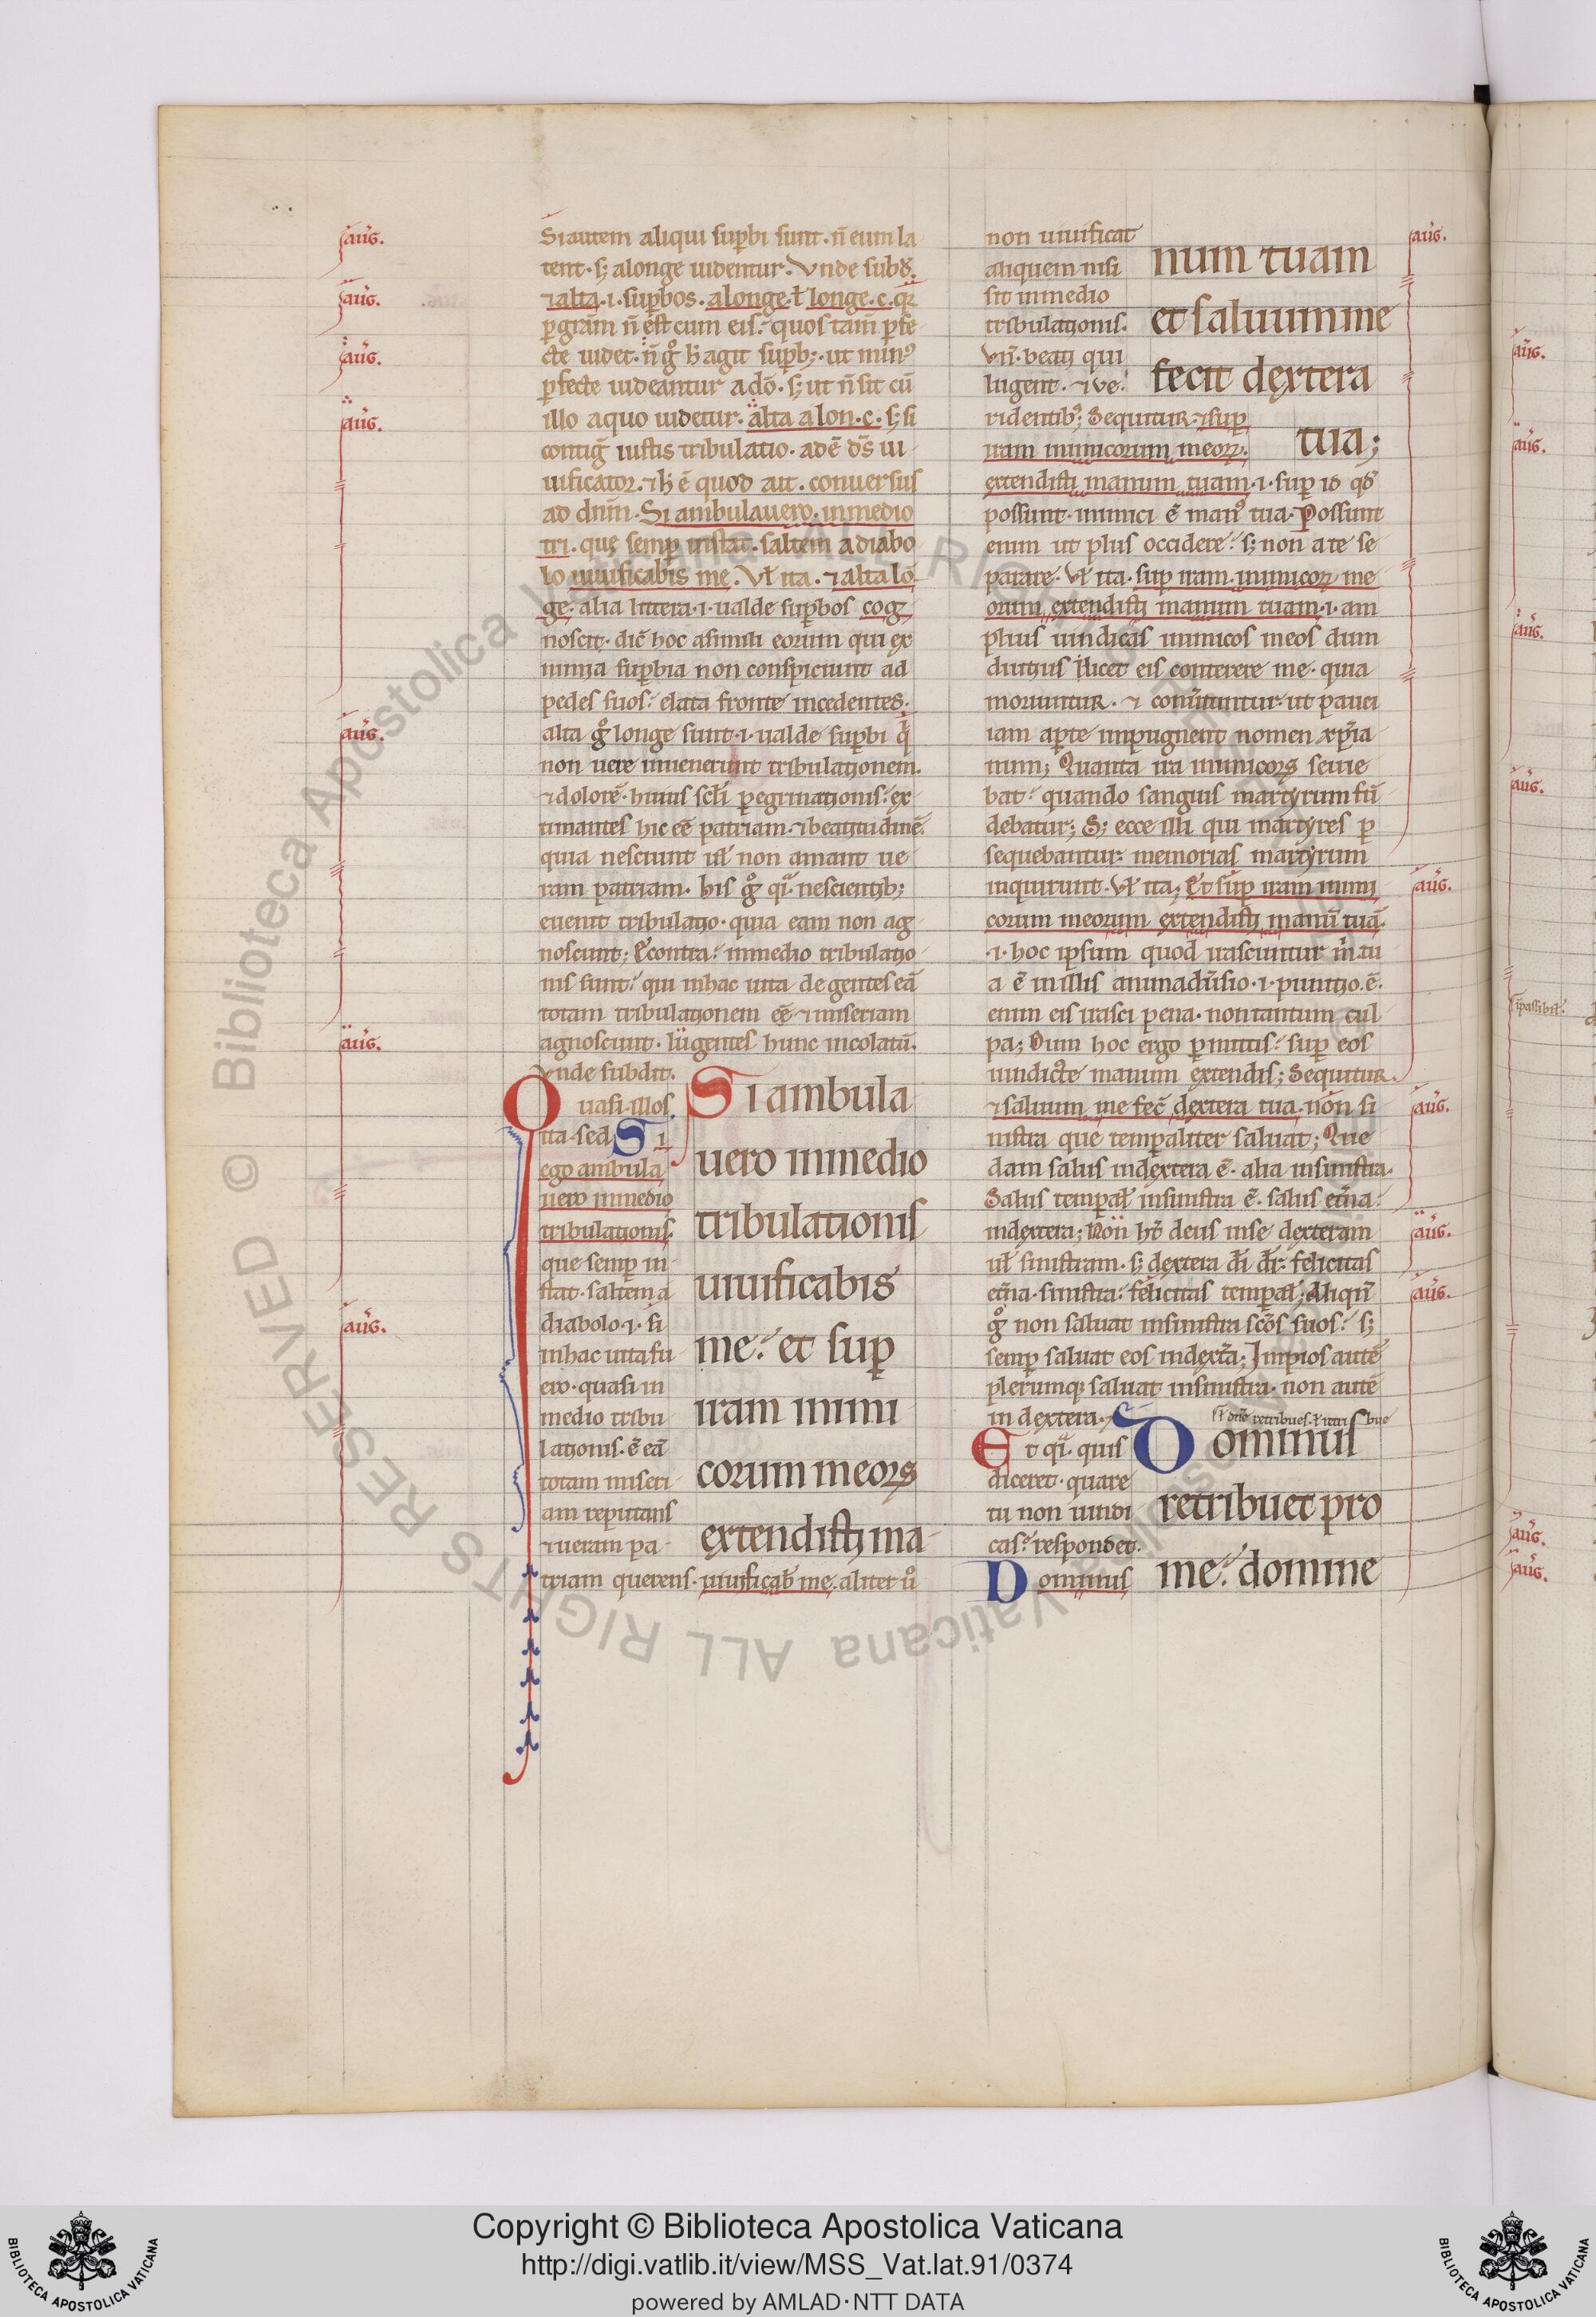 Si autem aliqui suꝑbi sunt · n̄ eum la
tent · sꝫ alonge uidentur · Vnde subđ.
⁊ alta · i · suꝑbos · alonge · ł longe · c · qꝛ
ꝑ gr̄am n̄ est cum eis · quos tam̄ ꝑfe
cte uidet · n̄ gͦ h̄ agit suꝑbꝫ · ut minꝰ
ꝑfecte uideantur a dō · sꝫ ut n̄ sit cū
illo a quo uidetur · alta a lon · c · sꝫ si
contiḡ iustis tribulatio · adē d̄s ui
uificator · ⁊ h̄ ē quod ait · conuersus
ad dn̄m · Si ambulauero · inmedio
tri · quę semꝑ instat · saltem a diabo
lo uiuificabis me · Vł ita · ⁊ alta lō
ge · alia littera · i · ualde suꝑbos cog
noscit · dic̄ hoc a simili eorum qui ex
nimia suꝑbia non conspiciunt ad
pedes suos · elata fronte incedentes ·
alta gͦ longe sunt · i · ualde suꝑbi q̇
non uere inuenerunt tribulationem ·
⁊ dolorē · huius scłi ꝑegrinationis · ex
timantes hic eē patriam · ⁊ beatitudinē ·
quia nesciunt ul̄ non amant ue
ram patriam · his gͦ qͣ nescientibꝫ
euenit tribulatio · quia eam non ag
noscunt ; Econtra · inmedio tribulatio
nis sunt · qui inhac uita degentes eā
totam tribulationem eē ⁊ miseriam
agnoscunt · lugentes hunc incolatū ·
Vnde subdit ·
Quasi · illos
ita · sed Si
ego ambula
uero inmedio
tribulationis ·
que semꝑ in
stat · saltem a
diabolo · i · si
inhac uita fu
ero · quasi in
medio tribu
lationis · ē eā
totam miseri
am reputans
⁊ ueram pa
triam querens · uiuificab̄ me · aliter u̇
Si ambula
uero inmedio
tribulationis
uiuificabis
me · et suꝑ
iram inimi
corum meorꝝ
extendisti ma
non uiuificat
aliquem nisi
sit inmedio
tribulationis ·
Vn̄ · beati qui
lugent · ⁊ ve ·
ridentibꝰ ; Sequitur · ⁊ suꝑ
iram inimicorum meoꝝ ·
extendisti manum tuam · i · suꝑ id qđ
possunt inimici ē manꝰ tua · Possunt
enim ut plus occidere · sꝫ non a te se
parare · Vł ita · suꝑ iram · inimicoꝝ me
orum extendisti manum tuam · i · am
plius uindicas inimicos meos dum
diutius licet eis conterere me · quia
moriuntur · ⁊ conu̅tuntur · ut pauci
iam aꝑte impugnent nomen xp̄ia
num ; Quanta ira inimicorꝝ seuie
bat · quando sanguis martyrum fū
debatur ; Sꝫ ecce illi qui martyres ꝑ
sequebantur · memorias martyrum
inquirunt · Vł ita ; Et suꝑ iram inimi
corum meorum extendisti manū tuā ·
· i · hoc ipsum quod irascuntur m̄ · tu
a ē in illis animadu̅sio · i · punitio · ē ·
enim eis irasci pena · non tantum cul
pa ; Dum hoc ergo ꝑmittis · suꝑ eos
uindicte manum extendis ; Sequitur ·
⁊ saluum me fec̄ dextera tua · non si
nistra que temporaliter saluat ; Que
dam salus indextera ē · alia insinistra ·
Salus temporal̄ insinistra ē · salus et̄na ·
indextera ; Non ht̄ deus inse dexteram
ul̄ sinistram · sꝫ dextera d̄i dr̄ · felicitas
et̄na · sinistra · felicitas temporal̄ ; Aliqn̄
gͦ non saluat insinistra sc̄os suos · sꝫ
semꝑ saluat eos indext̄a ; Impios autē
plerumqꝫ saluat insinistra · non autē
in dextera ·
Et qͣ · quis
diceret · quare
tu non uindi
cas · respondet ·
Dominus
num tuam
et saluum me
fecit dextera
tua ;
Dominus
retribuet pro
me · domine
aug̅.
aug̅.
aug̅.
aug̅.
aug̅.
aug̅.
aug̅.
aug̅.
aug̅.
aug̅.
aug̅.
aug̅.
Copyright © Biblioteca Apostolica Vaticana
http://digi.vatlib.it/view/MSS_Vat.lat.91/0374
powered by AMLAD·NTT DATA
BIBLIOTECA APOSTOLICA VATICANA
BIBLIOTECA APOSTOLICA VATICANA
© Biblioteca Apostolica Vaticana ALL RIGHTS RESERVED